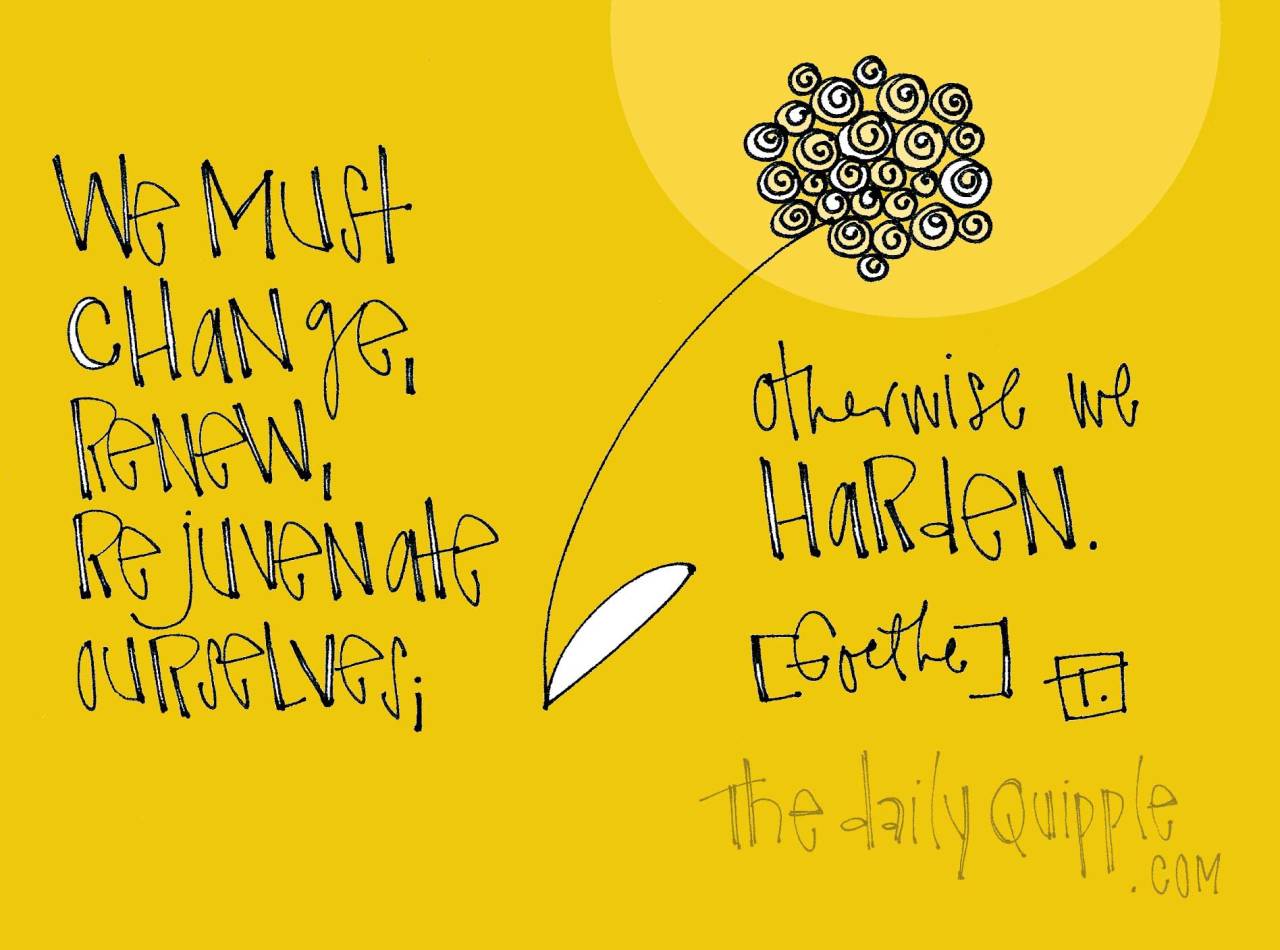 We Must
CHaNge,
ReNeW,
RejuveNate
ourselves;
otherwise we
HaRdeN.
[Goethe]
T.
The daily Quipple
.com